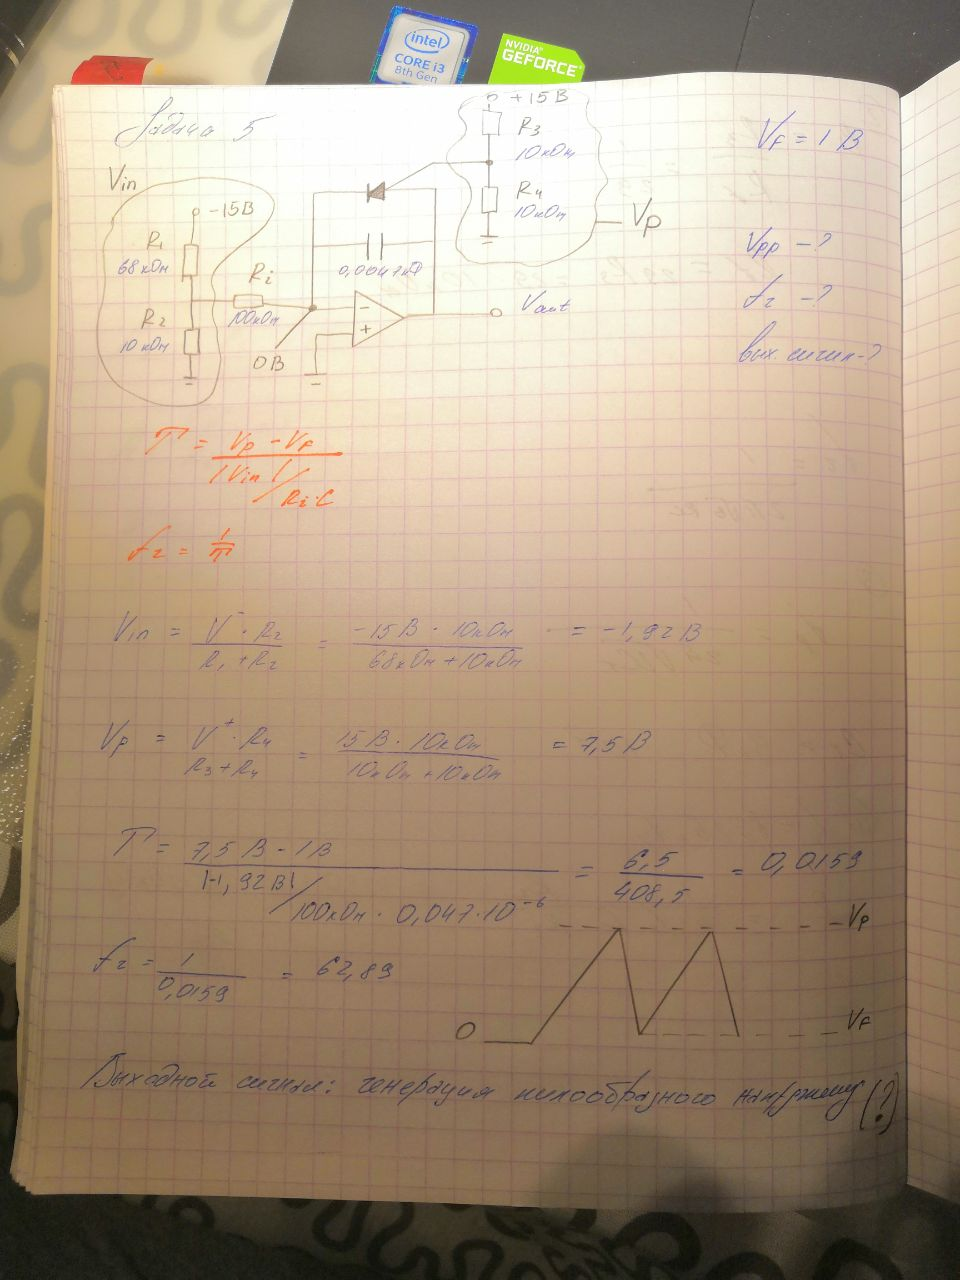 intel
CORE i3
8th Gen
NVIDIA
GEFORCE
Задача 5
+15В
R3
10кОм
R4
10кОм
Vp
VF = 1 В
Vin
-15В
R1
68кОм
Ri
100кОм
R2
10кОм
0В
0,0047мФ
-
+
Vout
Vpp - ?
fг - ?
вых. сигнал - ?
T = Vp - VF / |Vin| / Ri·C
fг = 1/T
Vin = V⁻ · R2 / R1 + R2 = -15В · 10кОм / 68кОм + 10кОм = -1,92В
Vp = V⁺ · R4 / R3 + R4 = 15В · 10кОм / 10кОм + 10кОм = 7,5В
T = 7,5В - 1В / |-1,92В| / 100кОм · 0,047·10⁻⁶ = 6,5 / 408,5 = 0,0159
Vp
fг = 1 / 0,0159 = 62,89
0
VF
Выходной сигнал: генерация пилообразного (?)